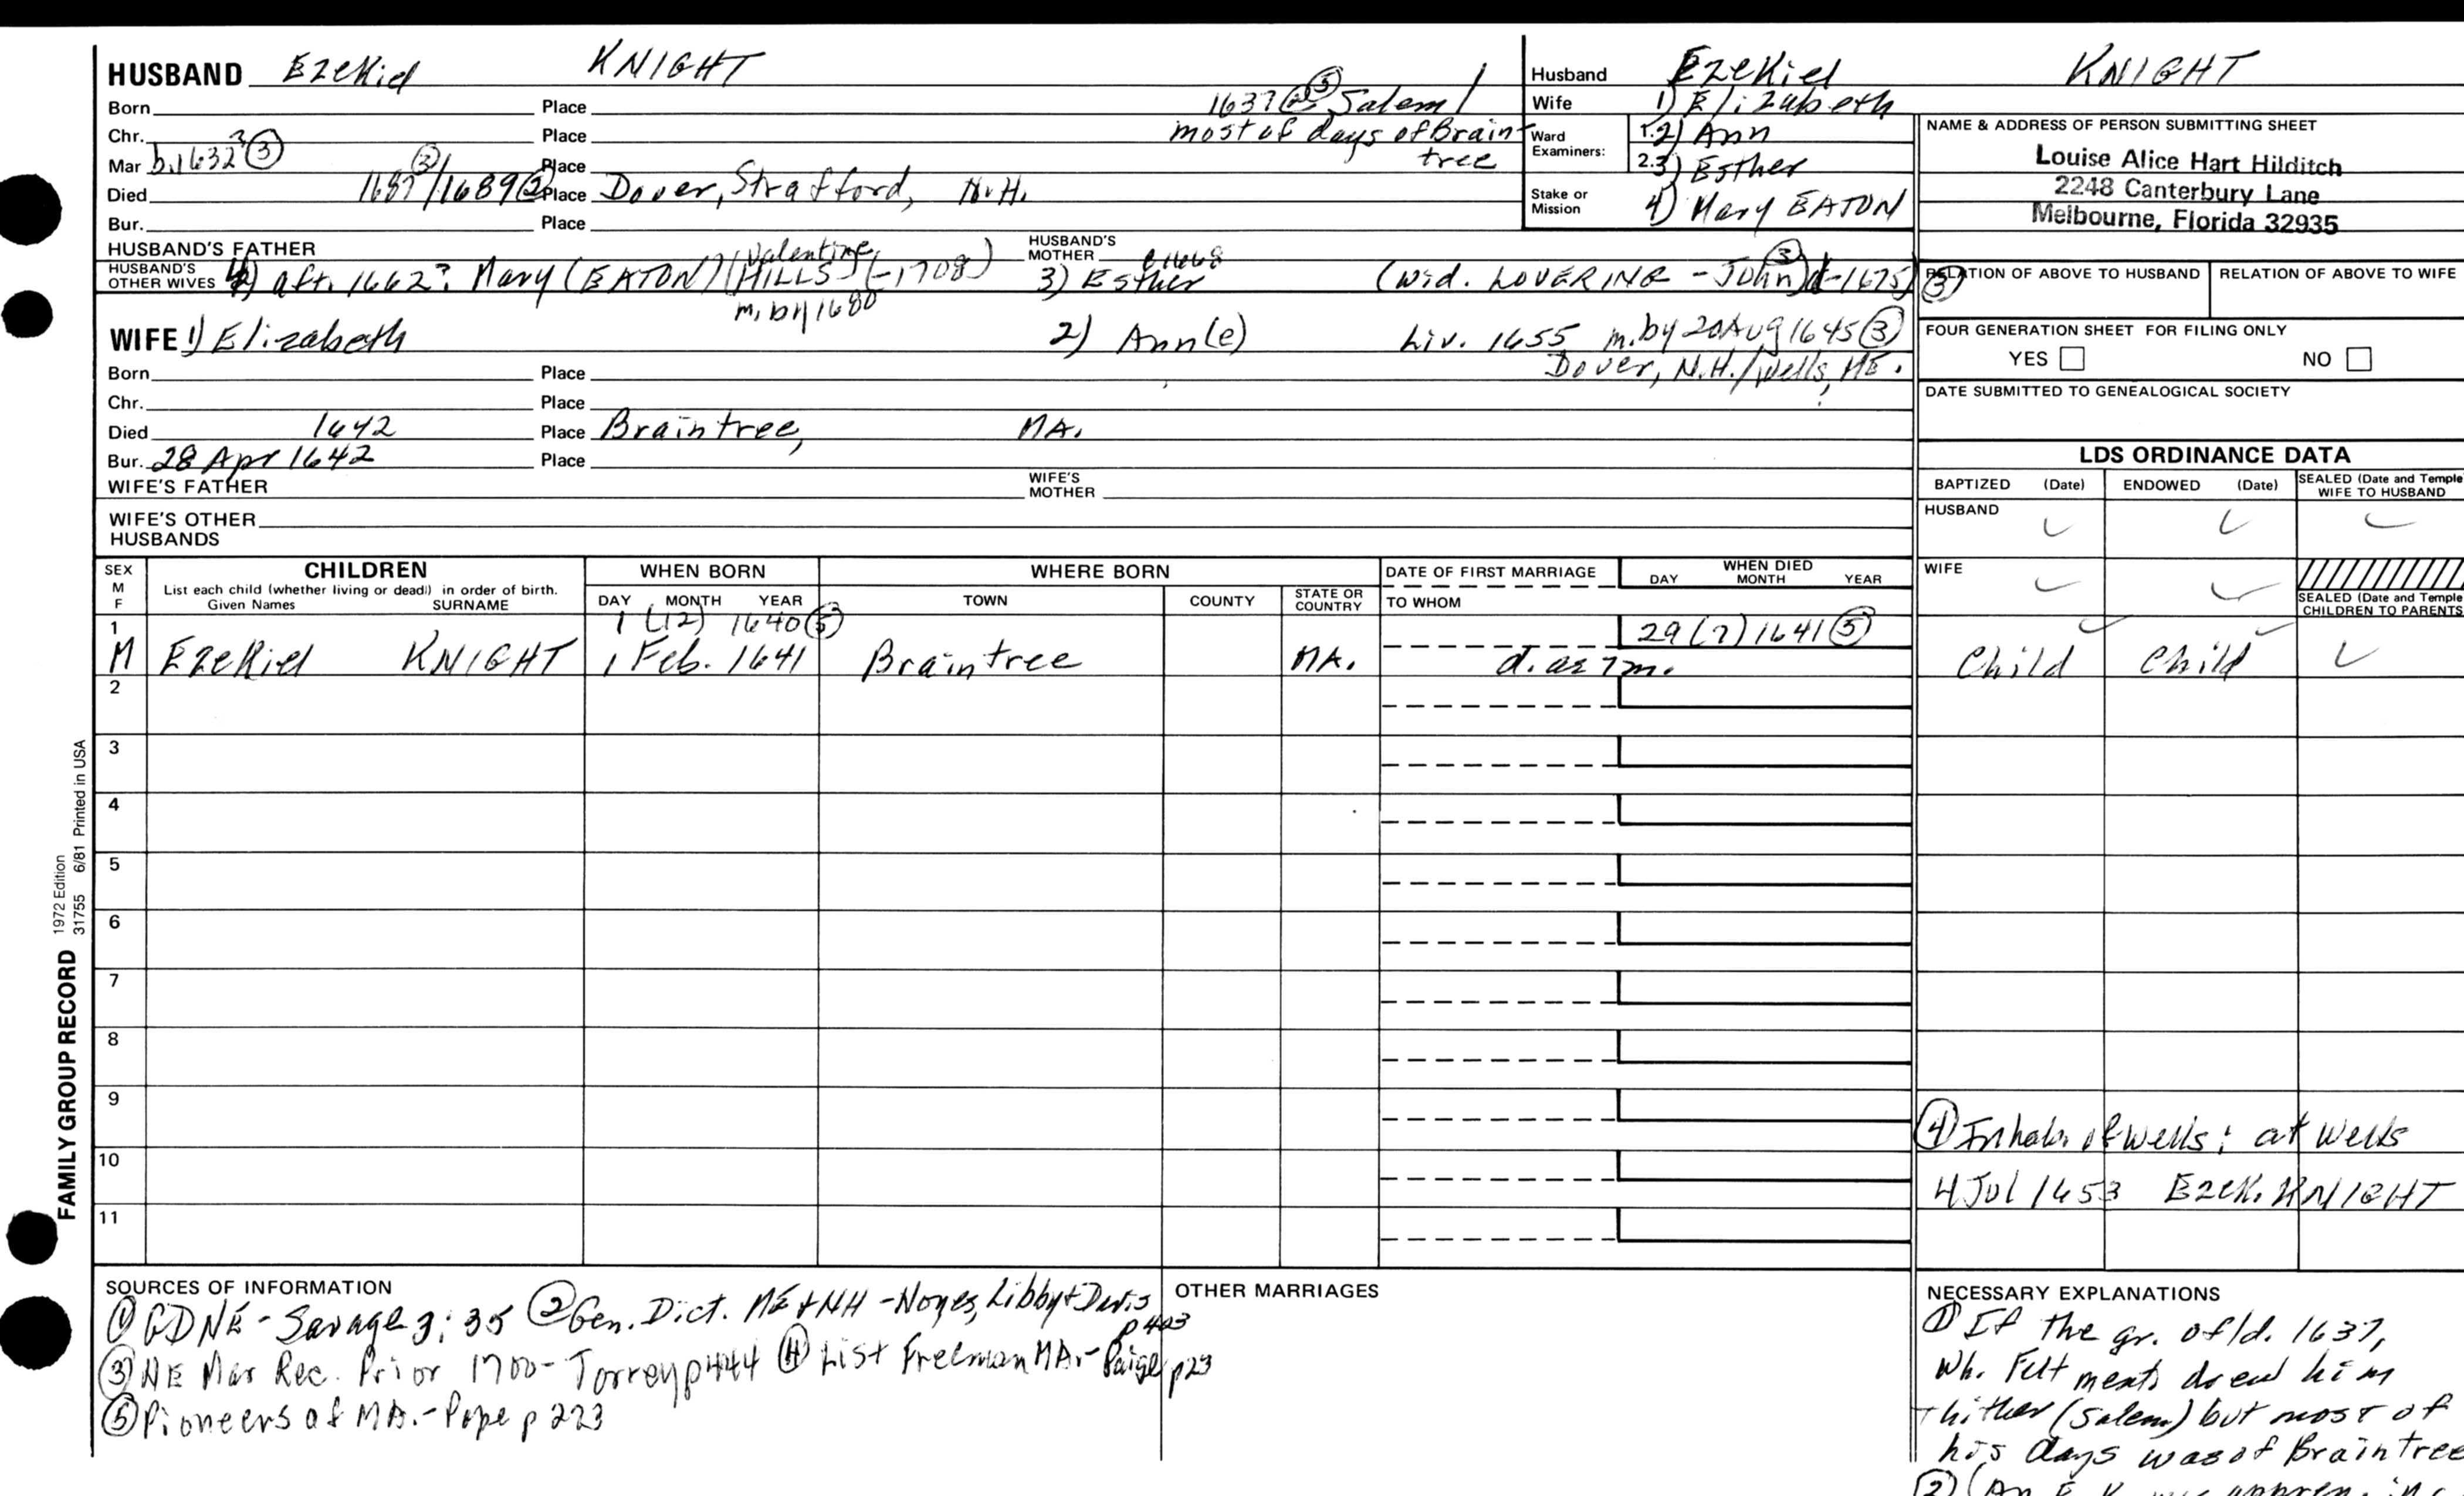 HUSBAND Ezekiel KNIGHT
Born Place 1637 Salem/
Chr. Place most of days of Brain-
tree
Mar b. 1632? ③ Place
Died 1687 ③/1689 ② Place Dover, Strafford, N.H.
Bur. Place
HUSBAND'S FATHER HUSBAND'S MOTHER
HUSBAND'S OTHER WIVES 4) aft. 1662? Mary (EATON) (Valentine HILLS) (-1708) 3) Esther c1668 (wid. LOVERING - John) d-1675) ③
m. by 1680
WIFE 1) Elizabeth 2) Ann(e) Liv. 1655 m. by 20 Aug 1645 ③
Born Place Dover, N.H./Wells, ME.
Chr. Place
Died 1642 Place Braintree, MA.
Bur. 28 Apr 1642 Place
WIFE'S FATHER WIFE'S MOTHER
WIFE'S OTHER HUSBANDS
Husband Ezekiel KNIGHT
Wife 1) Elizabeth
Ward Examiners: 1. 2) Ann
2. 3) Esther
Stake or Mission 4) Mary EATON
NAME & ADDRESS OF PERSON SUBMITTING SHEET
Louise Alice Hart Hilditch
2248 Canterbury Lane
Melbourne, Florida 32935
RELATION OF ABOVE TO HUSBAND RELATION OF ABOVE TO WIFE
FOUR GENERATION SHEET FOR FILING ONLY
YES NO
DATE SUBMITTED TO GENEALOGICAL SOCIETY
LDS ORDINANCE DATA
BAPTIZED (Date) ENDOWED (Date) SEALED (Date and Temple
WIFE TO HUSBAND
HUSBAND
WIFE
SEALED (Date and Temple
CHILDREN TO PARENTS
SEX
M
F
CHILDREN
List each child (whether living or dead) in order of birth.
Given Names SURNAME
WHEN BORN
DAY MONTH YEAR
WHERE BORN
TOWN COUNTY STATE OR COUNTRY
DATE OF FIRST MARRIAGE
TO WHOM
WHEN DIED
DAY MONTH YEAR
1 1 (12) 1640 ⑤ 29 (7) 1641 ⑤
M Ezekiel KNIGHT 1 Feb. 1641 Braintree MA. d. ae 7 m. Child Child
2
3
4
5
6
7
8
9
10
11
④ Inhab. of Wells; at Wells
4 Jul 1653 Ezek. KNIGHT
FAMILY GROUP RECORD 1972 Edition
31755 6/81 Printed in USA
SOURCES OF INFORMATION
① GDNE - Savage 3:35 ② Gen. Dict. ME & NH - Noyes, Libby & Davis
p 403
③ NE Mar Rec. Prior 1700 - Torrey p 444 ④ List Freeman MA. - Paige p 23
⑤ Pioneers of MA. - Pope p 273
OTHER MARRIAGES
NECESSARY EXPLANATIONS
① If the gr. of ld. 1637,
wh. Felt ments drew him
thither (Salem) but most of
his days was of Braintree
② (An E. K. was appren. in